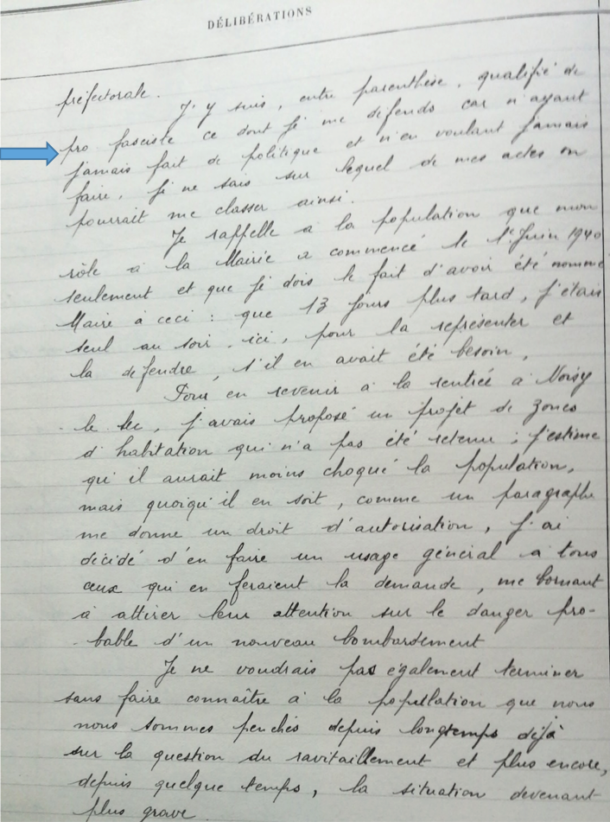 DÉLIBÉRATIONS
préfectorale.
J'y suis, entre parenthèse, qualifié de
pro fasciste ce dont je me défends car n'ayant
jamais fait de politique et n'en voulant jamais
faire, je ne sais sur lequel de mes actes on
pourrait me classer ainsi.
Je rappelle à la population que mon
rôle à la Mairie a commencé le 1er Juin 1940
seulement et que je dois le fait d'avoir été nommé
Maire à ceci : que 13 jours plus tard, j'étais
seul au soir, ici, pour la représenter et
la défendre, s'il en avait été besoin.
Pour en revenir à la rentrée à Noisy
le Sec, j'avais proposé un projet de zones
d'habitation qui n'a pas été retenu ; j'estime
qu'il aurait moins choqué la population,
mais quoiqu'il en soit, comme un paragraphe
me donne un droit d'autorisation, j'ai
décidé d'en faire un usage général à tous
ceux qui en feraient la demande, me bornant
à attirer leur attention sur le danger pro-
bable d'un nouveau bombardement
Je ne voudrais pas également terminer
sans faire connaître à la population que nous
nous sommes penchés depuis longtemps déjà
sur la question du ravitaillement et plus encore,
depuis quelque temps, la situation devenant
plus grave